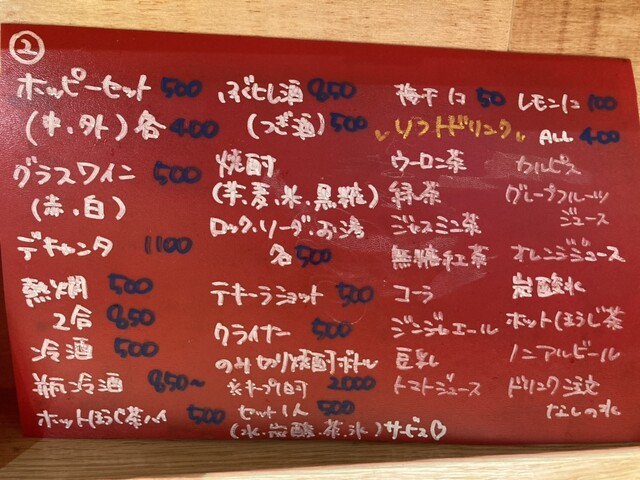 ②
ホッピーセット 500
(中、外) 各 400
グラスワイン 500
(赤、白)
デキャンタ 1100
熱燗 500
2合 850
冷酒 500
瓶冷酒 850〜
ホットほうじ茶ハイ 500
850
(つぎ酒) 500
焼酎
(芋、麦、米、黒糖)
ロック、ソーダ、お湯
各 500
テキーラショット 500
クライナー 500
のみ切り焼酎ボトル
※キープ1ヶ月 2000
セット1人 500
(水、炭酸、茶、氷)サービス♡
梅干1コ 50
レモン1コ 100
ソフトドリンク
ALL 400
ウーロン茶
緑茶
ジャスミン茶
無糖紅茶
コーラ
ジンジャエール
豆乳
トマトジュース
カルピス
グレープフルーツ
ジュース
オレンジジュース
炭酸水
ホットほうじ茶
ノンアルビール
ドリンク注文
なしの水